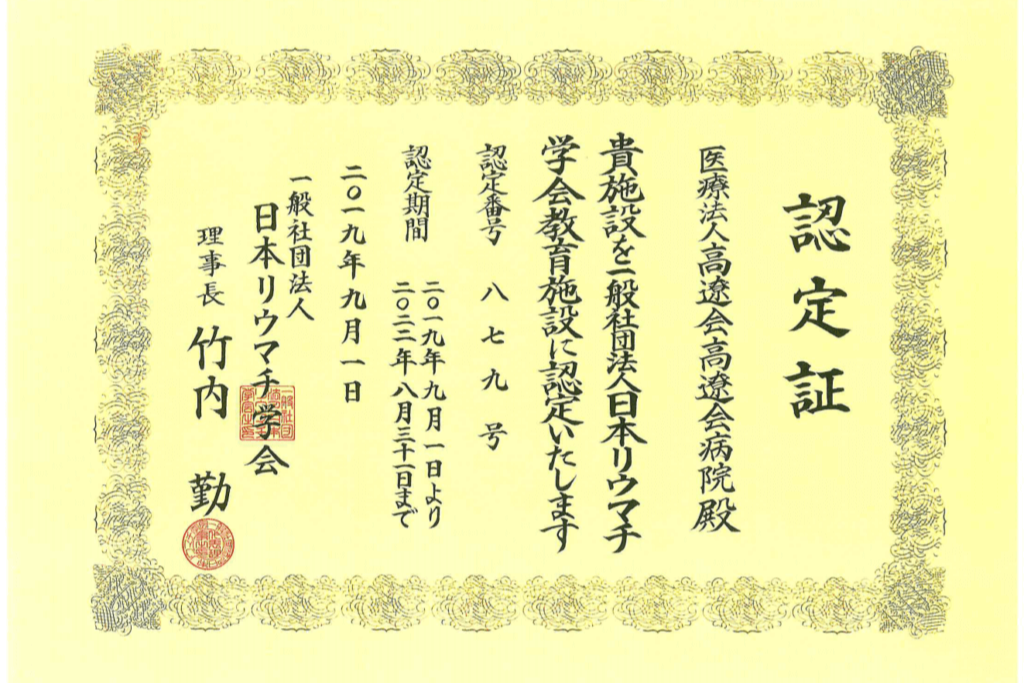 認定証
医療法人高遼会高遼会病院殿
貴施設を一般社団法人日本リウマチ
学会教育施設に認定いたします
認定番号 八七九号
認定期間 二〇一九年九月一日より
二〇二二年八月三十一日まで
二〇一九年九月一日
一般社団法人
日本リウマチ学会
理事長 竹内 勤